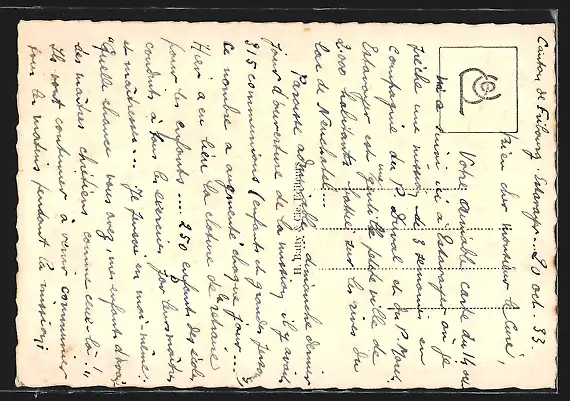 Canton de Fribourg. Estavayer... 20 oct. 33.
Bien cher Monsieur le Curé,
Votre aimable carte du 14 oct
m'a suivi ici à Estavayer où je
prêche une mission de 3 semaines en
compagnie du P. Duval et du P.
Estavayer est une gentille petite ville de
2.000 habitants bâtie sur les rives du
lac de Neuchâtel...
Paroisse admirable, dimanche dernier
jour d'ouverture de la mission il y avait
915 communions (enfants et grandes pers.)
Ce nombre a augmenté chaque jour...
Hier a eu lieu la clôture de la retraite
pour les enfants... 250 enfants des écoles
conduits à tous les exercices par leurs maîtres
et maîtresses... Je pensai en moi-même:
"Quelle chance vous avez, mes enfants d'avoir
des maîtres chrétiens comme ceux-là!"
Ils vont continuer à venir communier
tous les matins pendant la mission;